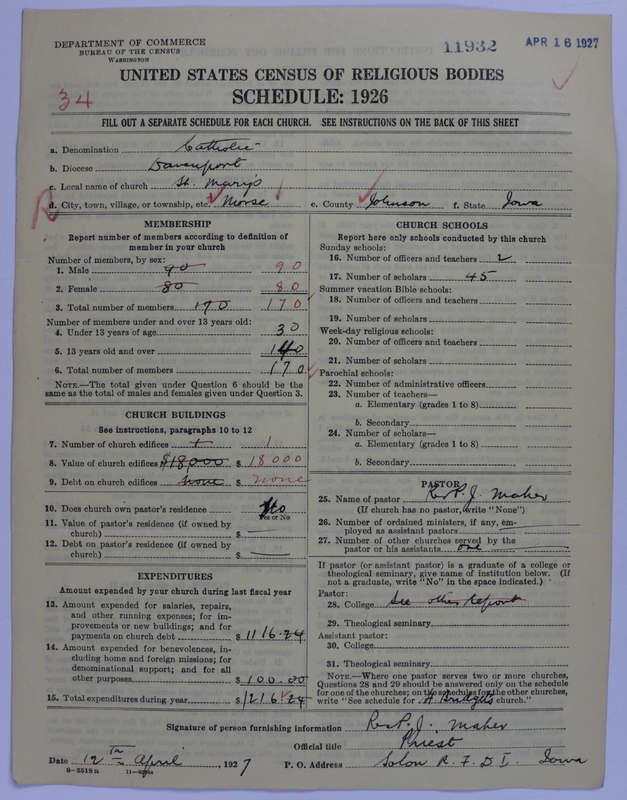 DEPARTMENT OF COMMERCE
BUREAU OF THE CENSUS
WASHINGTON
11932
APR 16 1927
UNITED STATES CENSUS OF RELIGIOUS BODIES
SCHEDULE: 1926
34
FILL OUT A SEPARATE SCHEDULE FOR EACH CHURCH. SEE INSTRUCTIONS ON THE BACK OF THIS SHEET
a. Denomination Catholic
b. Diocese Davenport
c. Local name of church St. Mary's
d. City, town, village, or township, etc. Morse e. County Johnson f. State Iowa
MEMBERSHIP
Report number of members according to definition of
member in your church
Number of members, by sex:
1. Male 90 90
2. Female 80 80
3. Total number of members 170 170
Number of members under and over 13 years old:
4. Under 13 years of age 30
5. 13 years old and over 140
6. Total number of members 170
NOTE.—The total given under Question 6 should be the
same as the total of males and females given under Question 3.
CHURCH BUILDINGS
See instructions, paragraphs 10 to 12
7. Number of church edifices 1 1
8. Value of church edifices $18000 $ 18000
9. Debt on church edifices none $ none
10. Does church own pastor's residence No
Yes or No
11. Value of pastor's residence (if owned by
church) $
12. Debt on pastor's residence (if owned by
church) $
EXPENDITURES
Amount expended by your church during last fiscal year
13. Amount expended for salaries, repairs,
and other running expenses; for im-
provements or new buildings; and for
payments on church debt $ 1116.24
14. Amount expended for benevolences, in-
cluding home and foreign missions; for
denominational support; and for all
other purposes $ 100.00
15. Total expenditures during year $ 1216.24
CHURCH SCHOOLS
Report here only schools conducted by this church
Sunday schools:
16. Number of officers and teachers 2
17. Number of scholars 45
Summer vacation Bible schools:
18. Number of officers and teachers
19. Number of scholars
Week-day religious schools:
20. Number of officers and teachers
21. Number of scholars
Parochial schools:
22. Number of administrative officers
23. Number of teachers—
a. Elementary (grades 1 to 8)
b. Secondary
24. Number of scholars—
a. Elementary (grades 1 to 8)
b. Secondary
PASTOR
25. Name of pastor Rev P. J. Maher
(If church has no pastor, write "None")
26. Number of ordained ministers, if any, em-
ployed as assistant pastors
27. Number of other churches served by the
pastor or his assistants one
If pastor (or assistant pastor) is a graduate of a college or
theological seminary, give name of institution below. (If
not a graduate, write "No" in the space indicated.)
Pastor:
28. College See other Report
29. Theological seminary
Assistant pastor:
30. College
31. Theological seminary
NOTE.—Where one pastor serves two or more churches,
Questions 28 and 29 should be answered only on the schedule
for one of the churches; on the schedules for the other churches,
write "See schedule for church."
Signature of person furnishing information Rev P. J. Maher
Official title Priest
Date 12 Th April, 1927 P. O. Address Solon R. F. D 1. Iowa
8-5518a